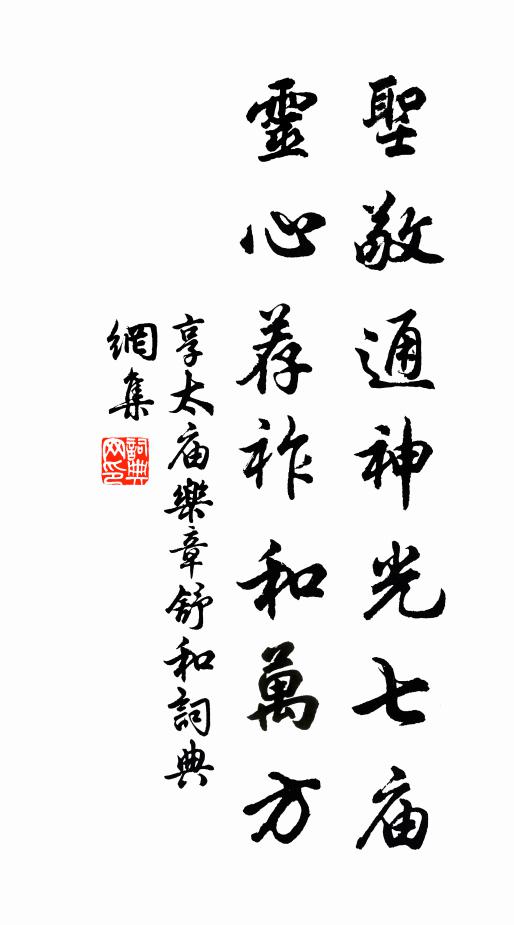 聖敬通神光七庙
靈心荐祚和萬方
享太庙樂章舒和詞典
網集
詞典
网印